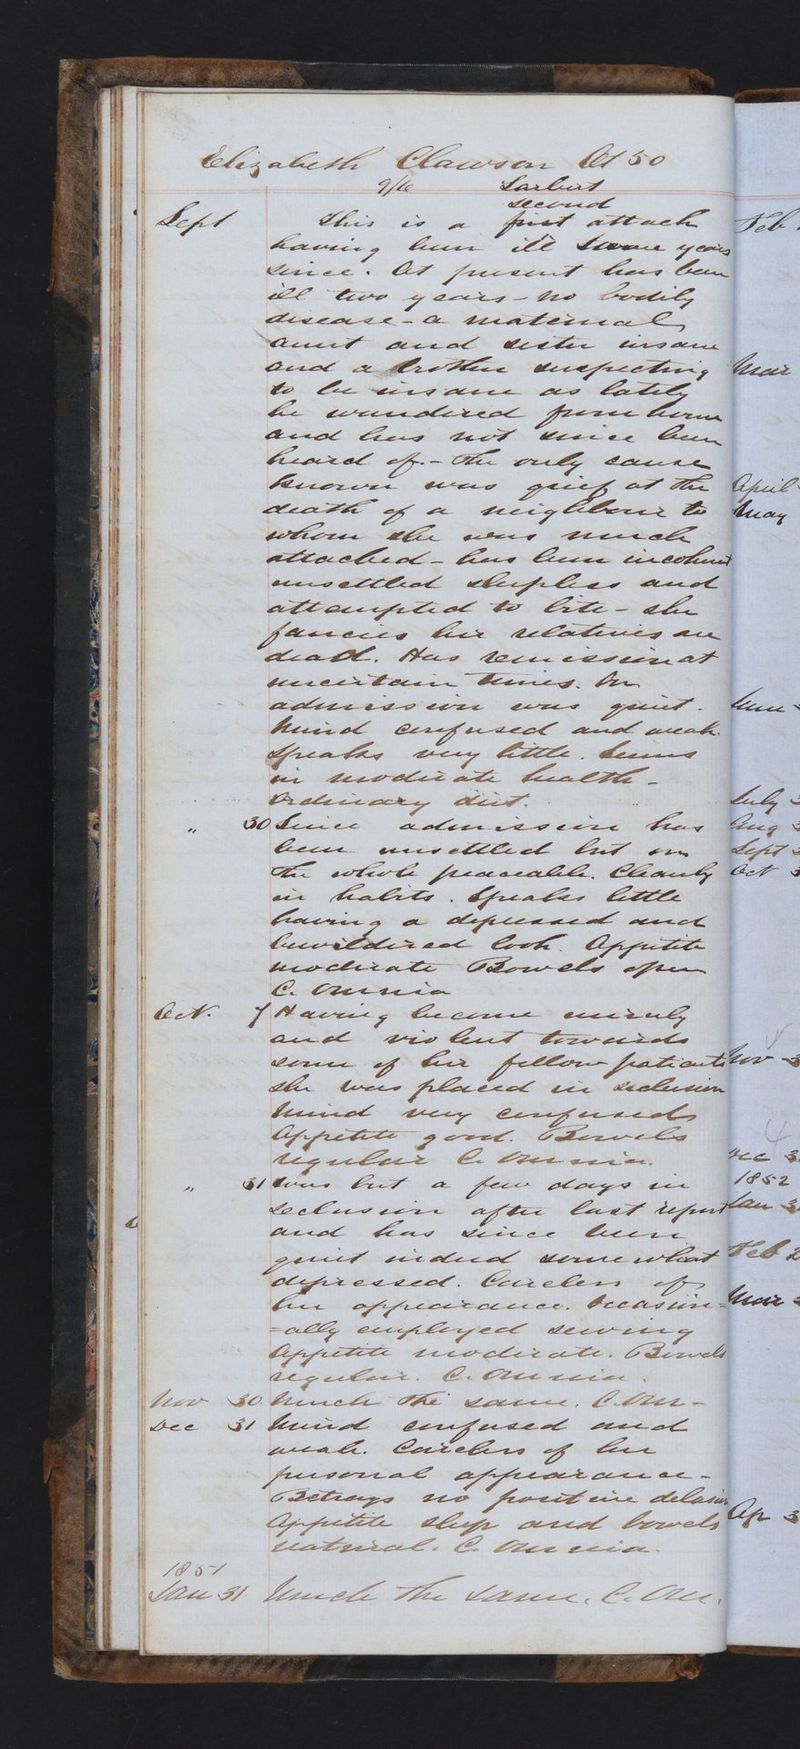 Elizabeth Clawson Æt 50
9/6
second
Sept This is a first attack
having been ill some years
since. At present has been
ill two years - no bodily
disease - a maternal
aunt and sister insane
and a brother suspecting
to be insane as lately
he wandered from home
and has not since been
heard of. - The only cause
known was grief at the
death of a neighbour to
whom she was much
attached - has been incoherent
unsettled sleepless and
attempted to bite - she
fancies her relatives are
dead. Has remission at
uncertain times. On
admission was quiet.
Mind confused and weak.
Speaks very little. Seems
in moderate health -
Ordinary diet.
" 30 Since admission has
been unsettled but on
the whole peaceable. Cleanly
in habits. Speaks little
having a depressed and
bewildered look. Appetite
moderate Bowels open
C. Omnia
Oct. 7 Having become unruly
and violent towards
some of her fellow patients
she was placed in seclusion
Mind very confused
Appetite good. Bowels
regular C. Omnia.
" 31 Was but a few days in
seclusion after last report
and has since been
quiet indeed somewhat
depressed. Careless of
her appearance. Occasion=
=ally employed sewing
Appetite moderate. Bowels
regular. C. Omnia.
Nov 30 Much the same. C. Om -
Dec 31 Mind confused and
weak. Careless of her
personal appearance -
Betrays no positive delusion
Appetite sleep and bowels
natural. C. Omnia.
1851
Jan 31 Much the same. C. Om.
Feb
Mar
April
May
June
July 3
Aug 3
Sept 3
Oct 3
Nov 3
Dec 3
1852
Jan 3
Feb 2
Mar
Ap 3